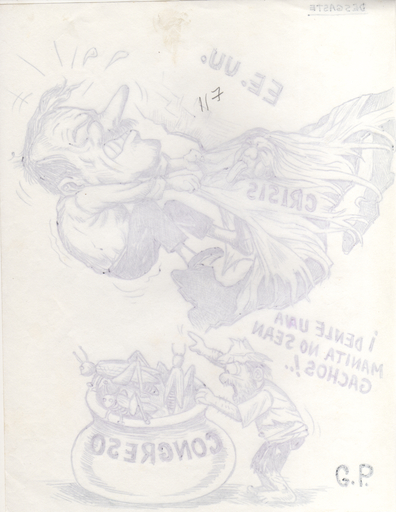 DESGASTE
EE.UU.
117
CRISIS
¡ DENLE UNA
MANITA NO SEAN
GACHOS!..
CONGRESO
G.P.